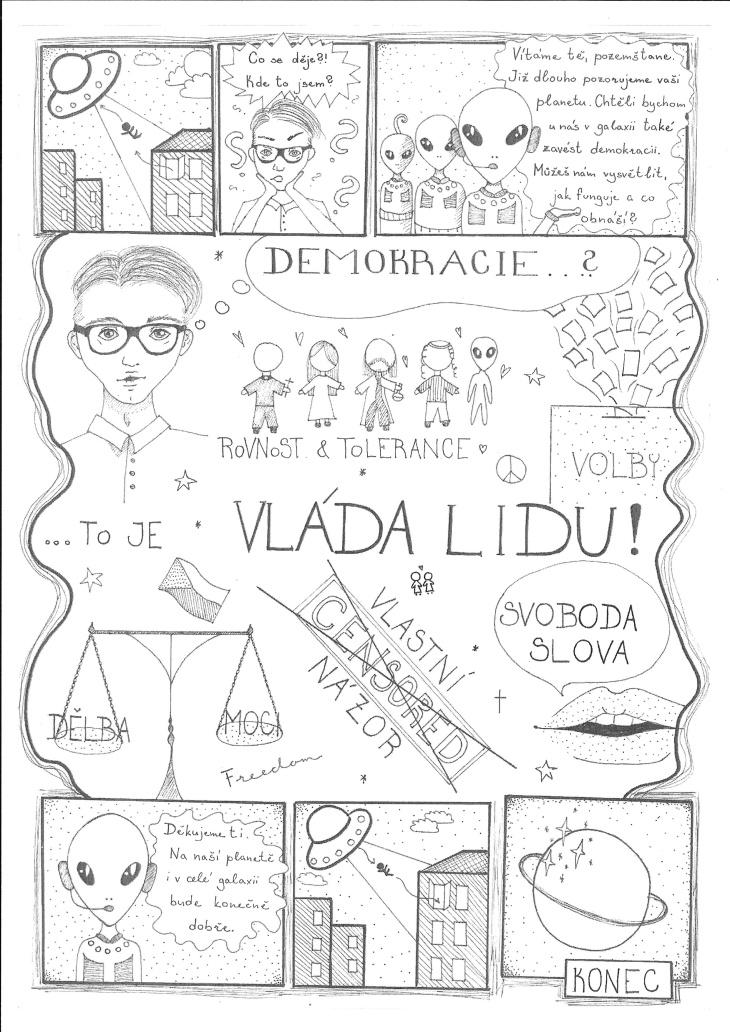 Co se děje?!
Kde to jsem?
Vítáme tě, pozemšťane.
Již dlouho pozorujeme vaši
planetu. Chtěli bychom
u nás v galaxii také
zavést demokracii.
Můžeš nám vysvětlit,
jak funguje a co
obnáší?
DEMOKRACIE...?
ROVNOST & TOLERANCE
VOLBY
...TO JE
VLÁDA LIDU!
DĚLBA
MOCI
Freedom
VLASTNÍ
CENSORED
NÁZOR
SVOBODA
SLOVA
Děkujeme ti.
Na naší planetě
i v celé galaxii
bude konečně
dobře.
KONEC